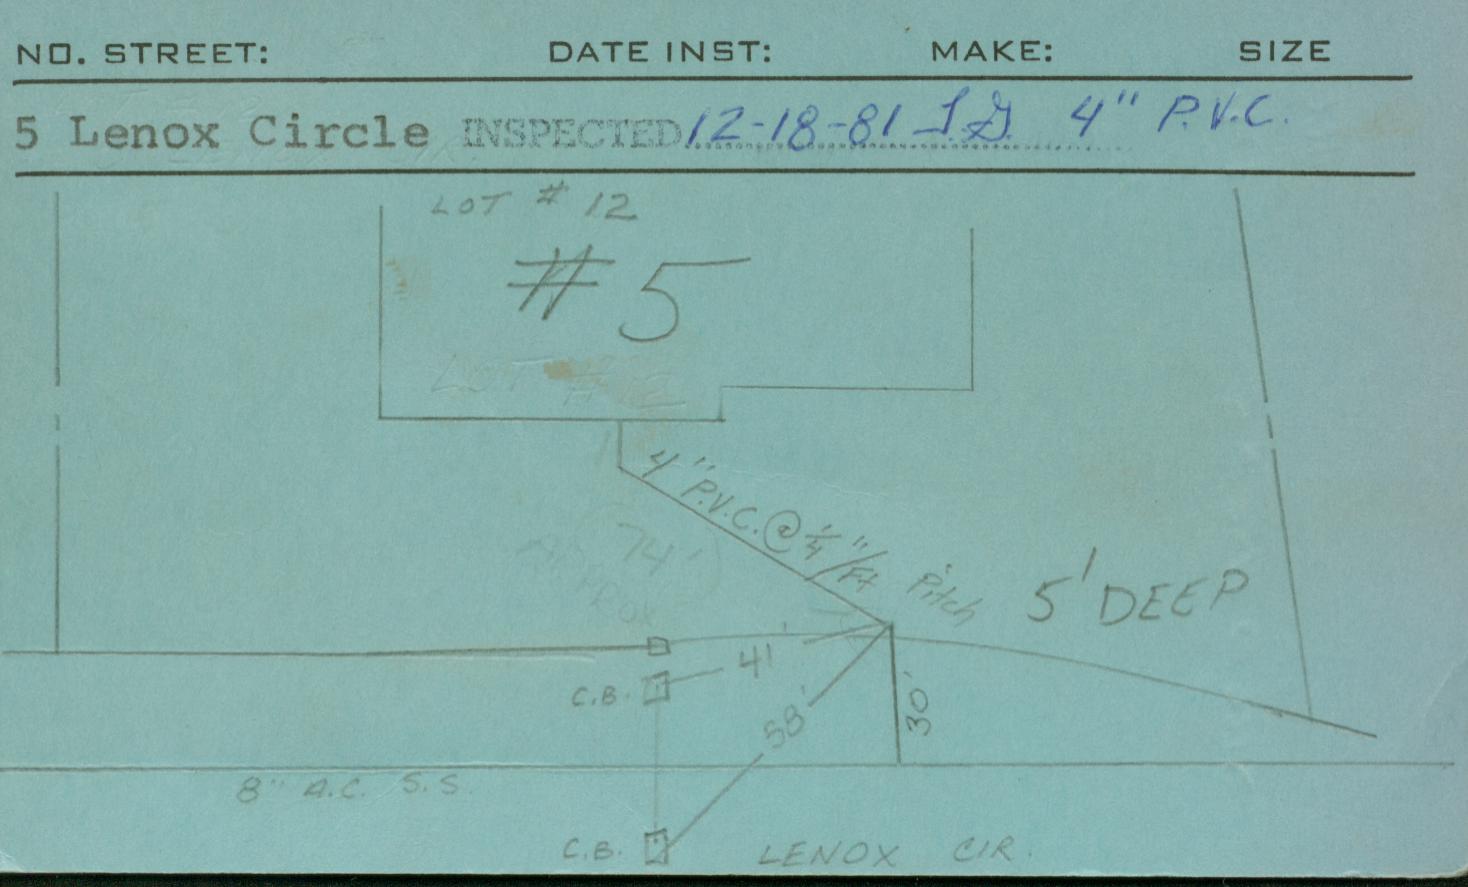 NO. STREET: DATE INST: MAKE: SIZE
5 Lenox Circle INSPECTED 12-18-81 J.G. 4" P.V.C.
LOT # 12
# 5
LOT # 12
4" P.V.C. @ 1/4"/Ft Pitch
5' DEEP
74'
41'
C.B.
58'
30'
8" A.C. S.S.
C.B.
LENOX CIR.